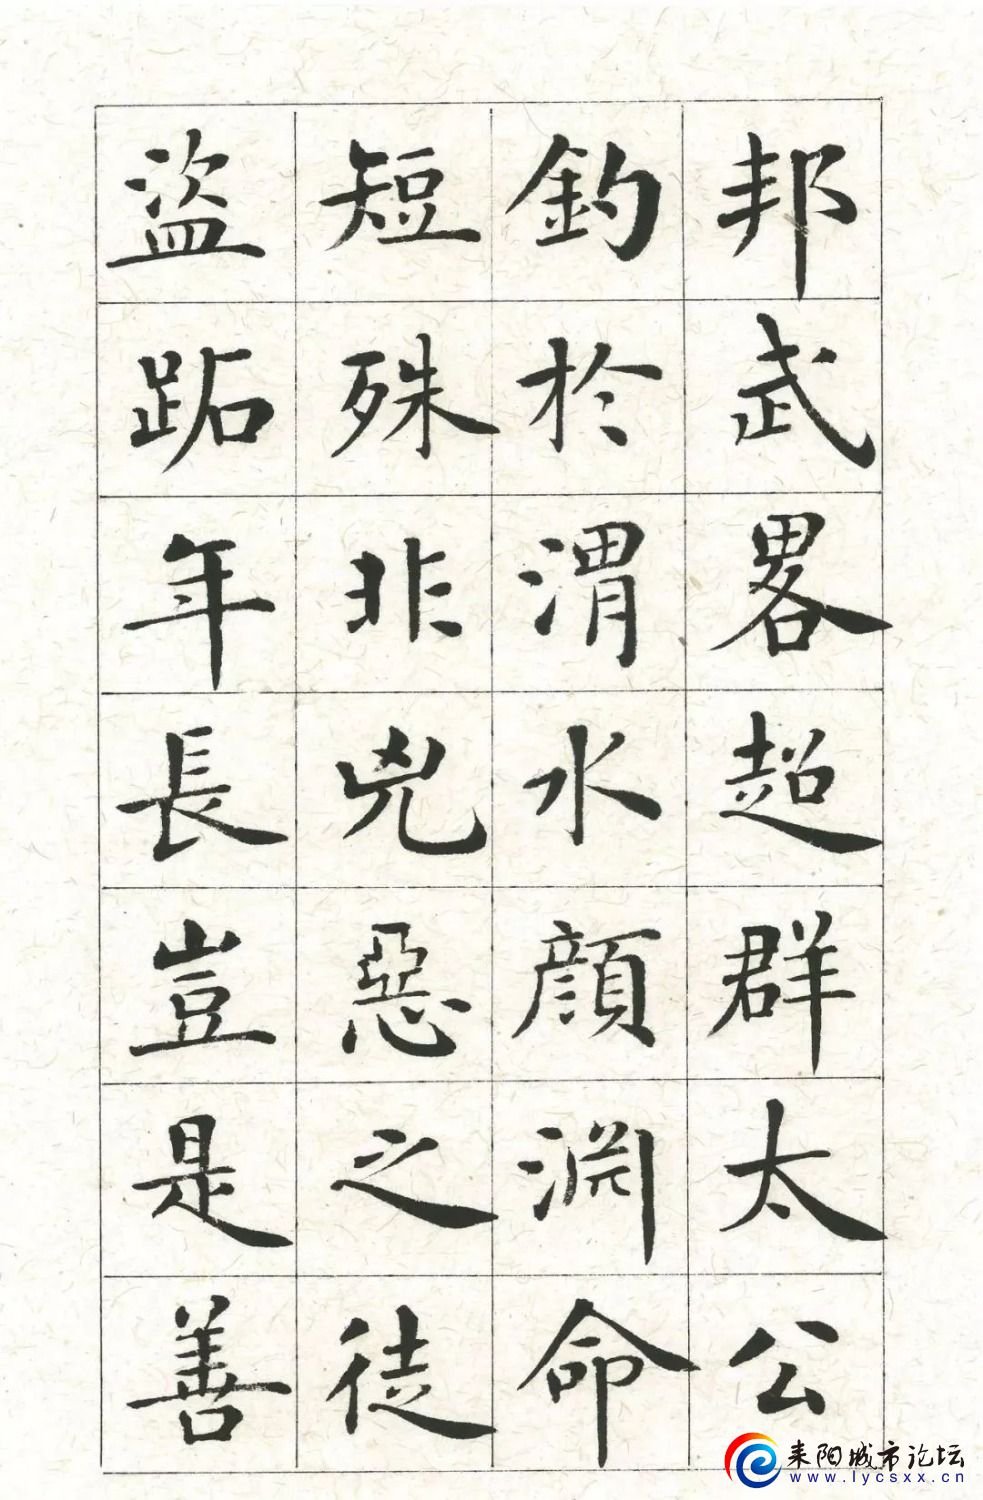 邦武畧超群太公
釣於渭水顏淵命
短殊非兇惡之徒
盜跖年長豈是善
耒阳城市论坛
www.lycsxx.cn